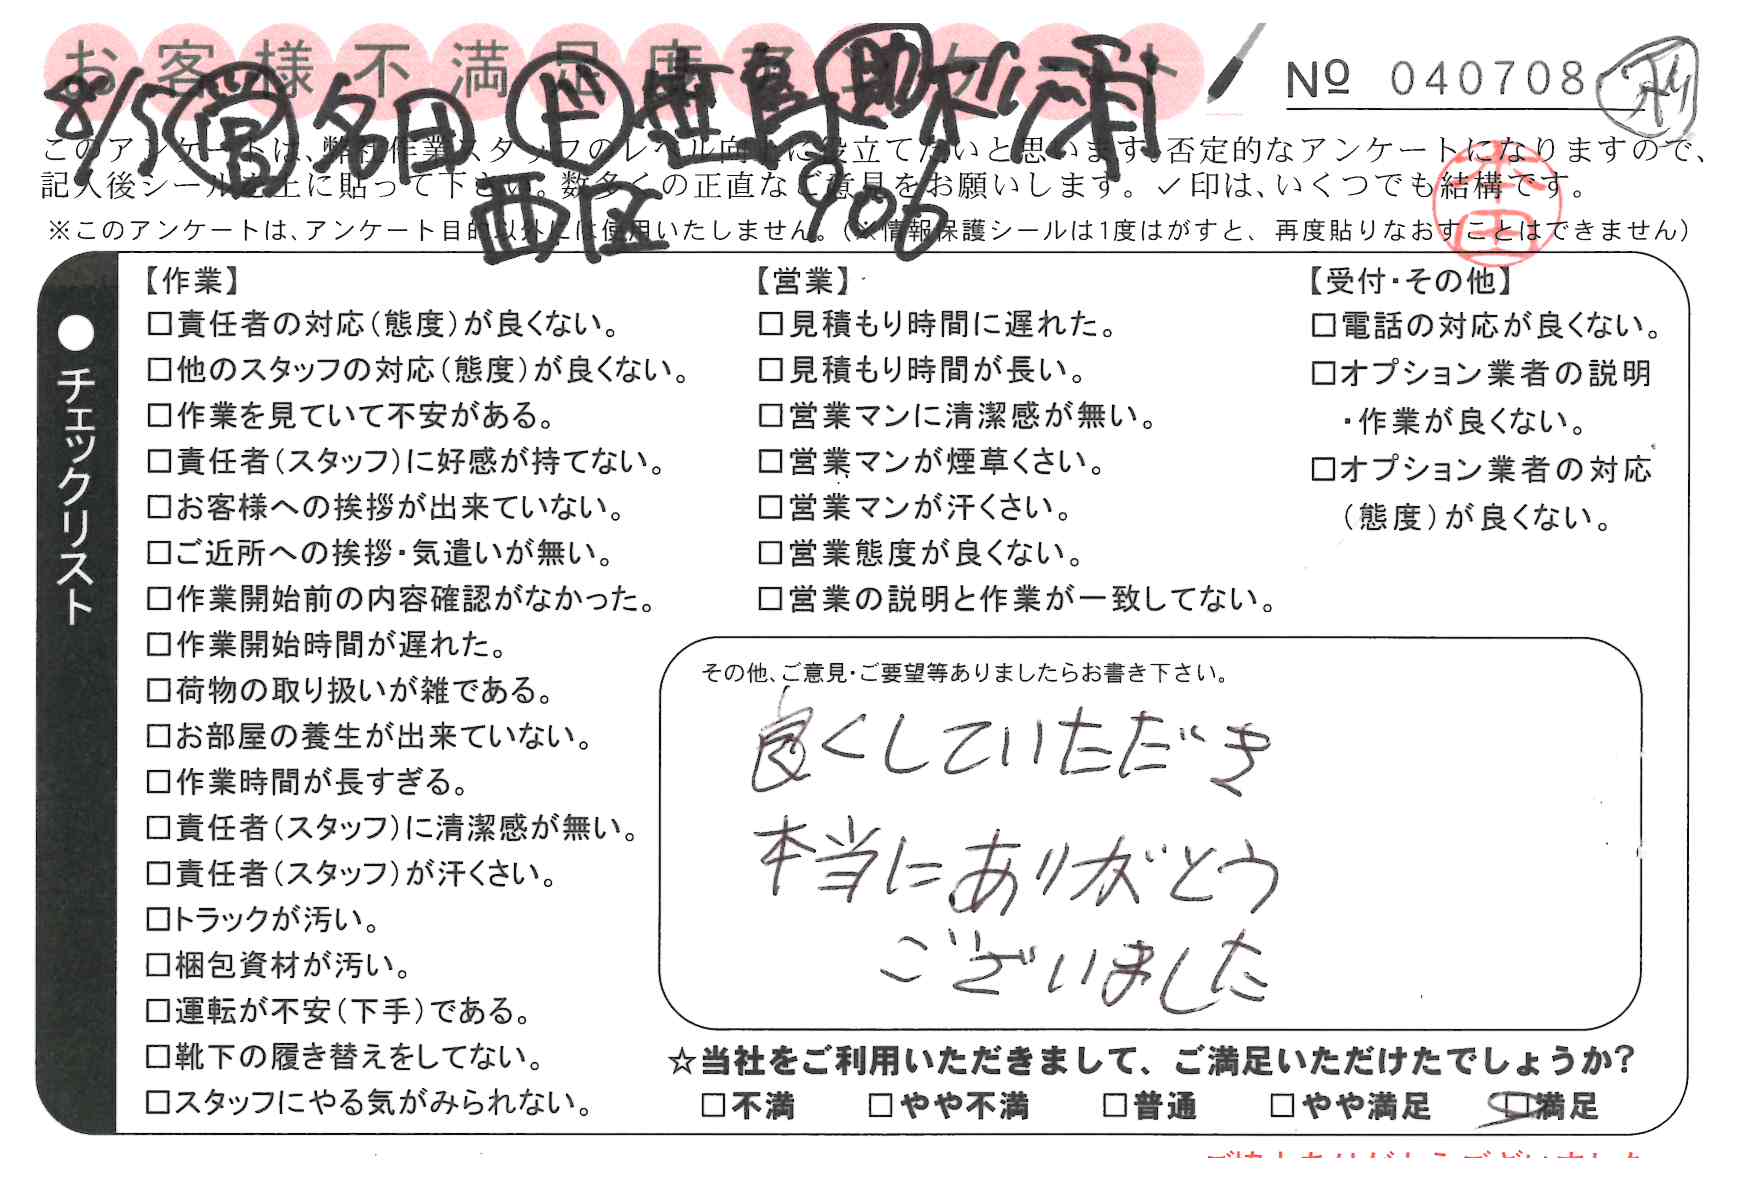 お客様不満足度アンケート
No 040708
8/5 営 多田 ド 世島 助 松浦
西区 906
このアンケートは、弊社作業スタッフのレベル向上に役立てたいと思います。否定的なアンケートになりますので、
記入後シールを上に貼って下さい。数多くの正直なご意見をお願いします。✓印は、いくつでも結構です。
※このアンケートは、アンケート目的以外には使用いたしません。(※情報保護シールは1度はがすと、再度貼りなおすことはできません)
●チェックリスト
【作業】
□責任者の対応(態度)が良くない。
□他のスタッフの対応(態度)が良くない。
□作業を見ていて不安がある。
□責任者(スタッフ)に好感が持てない。
□お客様への挨拶が出来ていない。
□ご近所への挨拶・気遣いが無い。
□作業開始前の内容確認がなかった。
□作業開始時間が遅れた。
□荷物の取り扱いが雑である。
□お部屋の養生が出来ていない。
□作業時間が長すぎる。
□責任者(スタッフ)に清潔感が無い。
□責任者(スタッフ)が汗くさい。
□トラックが汚い。
□梱包資材が汚い。
□運転が不安(下手)である。
□靴下の履き替えをしてない。
□スタッフにやる気がみられない。
【営業】
□見積もり時間に遅れた。
□見積もり時間が長い。
□営業マンに清潔感が無い。
□営業マンが煙草くさい。
□営業マンが汗くさい。
□営業態度が良くない。
□営業の説明と作業が一致してない。
【受付・その他】
□電話の対応が良くない。
□オプション業者の説明
・作業が良くない。
□オプション業者の対応
(態度)が良くない。
その他、ご意見・ご要望等ありましたらお書き下さい。
良くしていただき
本当にありがとう
ございました
☆当社をご利用いただきまして、ご満足いただけたでしょうか?
□不満 □やや不満 □普通 □やや満足 □満足